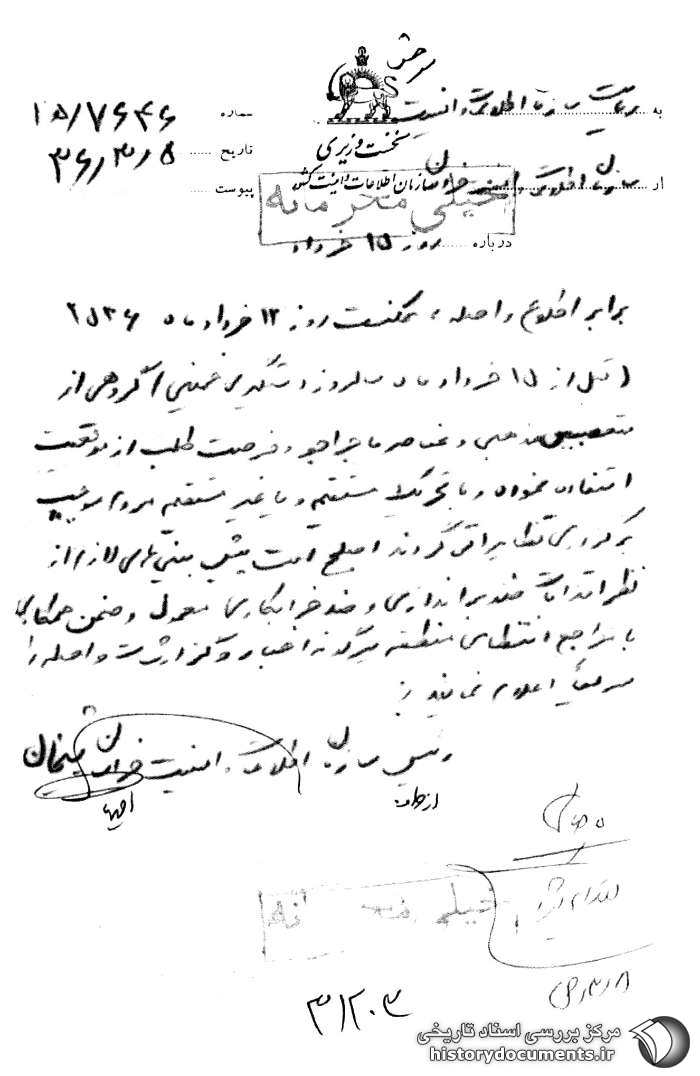 سرخس
به ریاست سازمان اطلاعات و امنیت
شماره ۱۵/۷۶۴۶
نخست وزیری
تاریخ ۳۶/۳/۵
سازمان اطلاعات و امنیت کشور
از سازمان اطلاعات و امنیت خراسان
پیوست
خیلی محرمانه
درباره روز ۱۵ خرداد
برابر اطلاع واصله، ممکنست روز ۱۲ خرداد ماه ۲۵۳۶
(قبل از ۱۵ خرداد ماه سالروز دستگیری خمینی) گروهی از
متعصبین مذهبی و عناصر ماجراجو و فرصت طلب از موقعیت
استفاده نموده و با تحریکات مستقیم و یا غیر مستقیم مردم موجب
برگزاری تظاهراتی گردند اصلح است پیش بینی های لازم از
نظر اقدامات ضد براندازی و ضد خرابکاری معمول و ضمن همکاری
با مراجع انتظامی منطقه هرگونه اخبار و گزارشات واصله را
سریعاً اعلام نمایند
رئیس سازمان اطلاعات و امنیت خراسان شیخان
از طرف
خیلی محرمانه
۳۱۲۰۳
مرکز بررسی اسناد تاریخی
historydocuments.ir